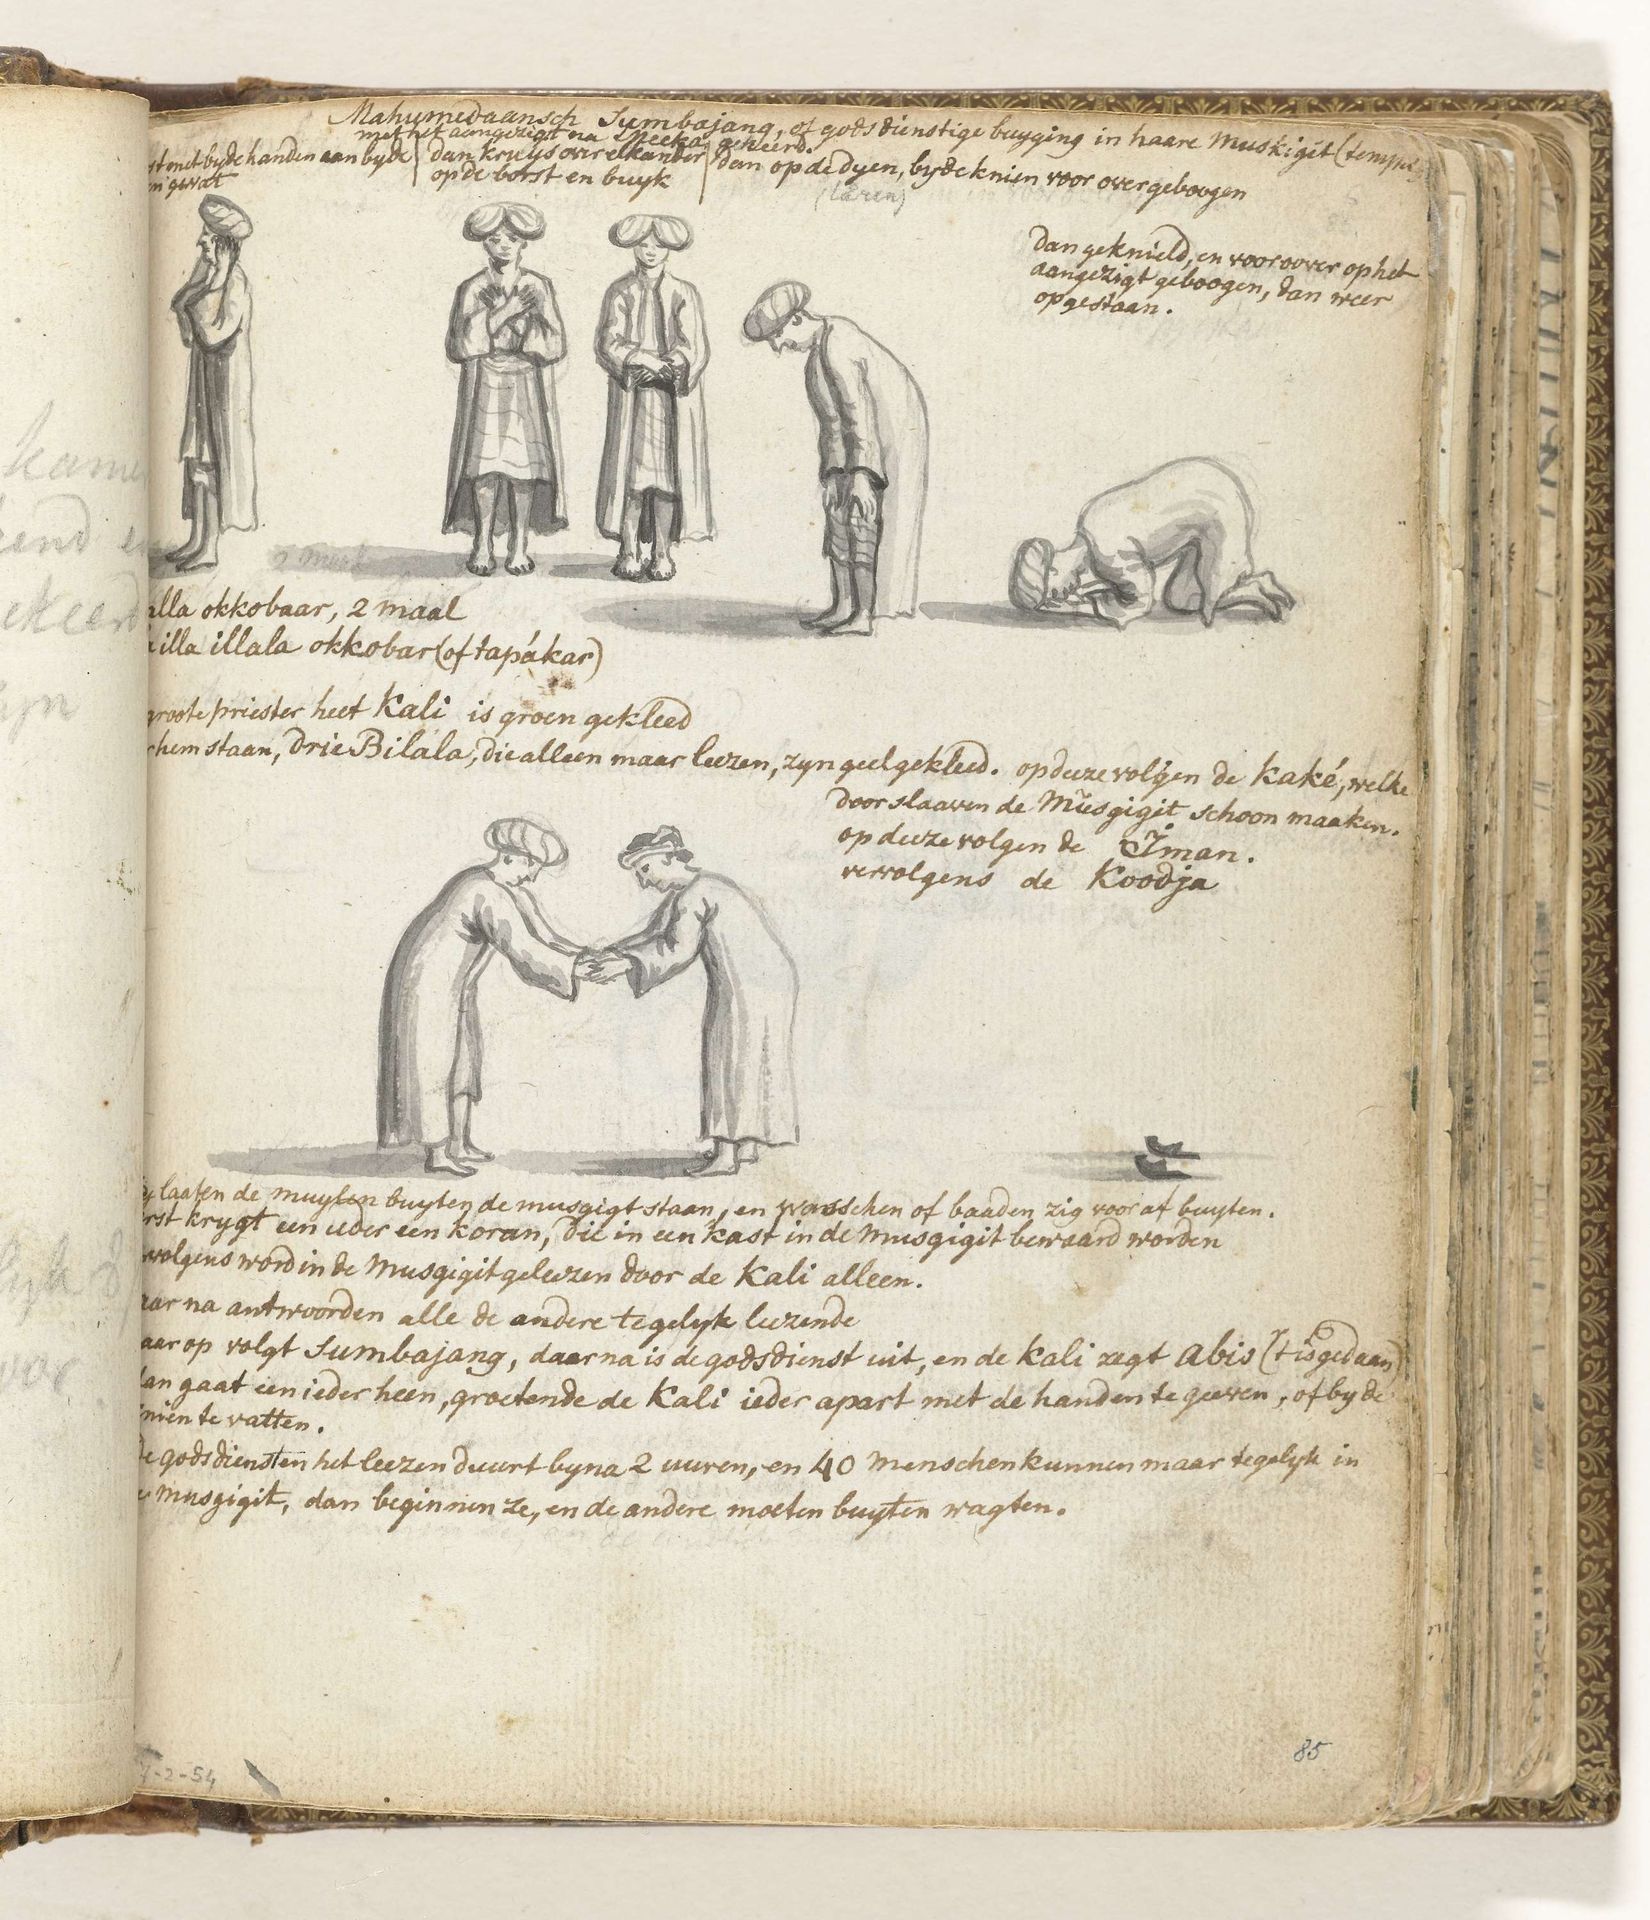 Mahumedaansch Sumbajang, of gods dienstige buyging in haare Muskigit (tempel
met het aangezigt na Mecka gekeerd.
met byde handen aan byde
gevat
dan kruys over elkander
op de borst en buyk
dan op de dyen, by de knien voor over geboogen
Dan geknield, en voorover op het
aangezigt geboogen, dan weer
opgestaan.
alla okkobaar, 2 maal
illa illala okkobar (of tapákar)
groote priester heet Kali is groen gekleed
hem staan, drie Bilala, die alleen maar leezen, zyn geel gekleed. op deeze volgen de Kaké, welke
door slaaven de Musgigit schoon maaken.
op deeze volgen de Iman.
vervolgens de Koodja
laaten de muylen buyten de musgigt staan, en wasschen of baaden zig voor af buyten.
erst krygt een ieder een koran, die in een kast in de Musgigit bewaard worden
volgens word in de Musgigit geleezen door de Kali alleen.
aar na antwoorden alle de andere tegelyk leezende
aar op volgt Sumbajang, daar na is de godsdienst uit, en de Kali zegt Abis ('t is gedaan)
an gaat een ieder heen, groetende de Kali ieder apart met de handen te geeven, of by de
te vatten.
de godsdienst en het leezen duurt byna 2 uuren, en 40 menschen kunnen maar tegelyk in
Musgigit, dan beginnen ze, en de andere moeten buyten wagten.
85
7-2-54